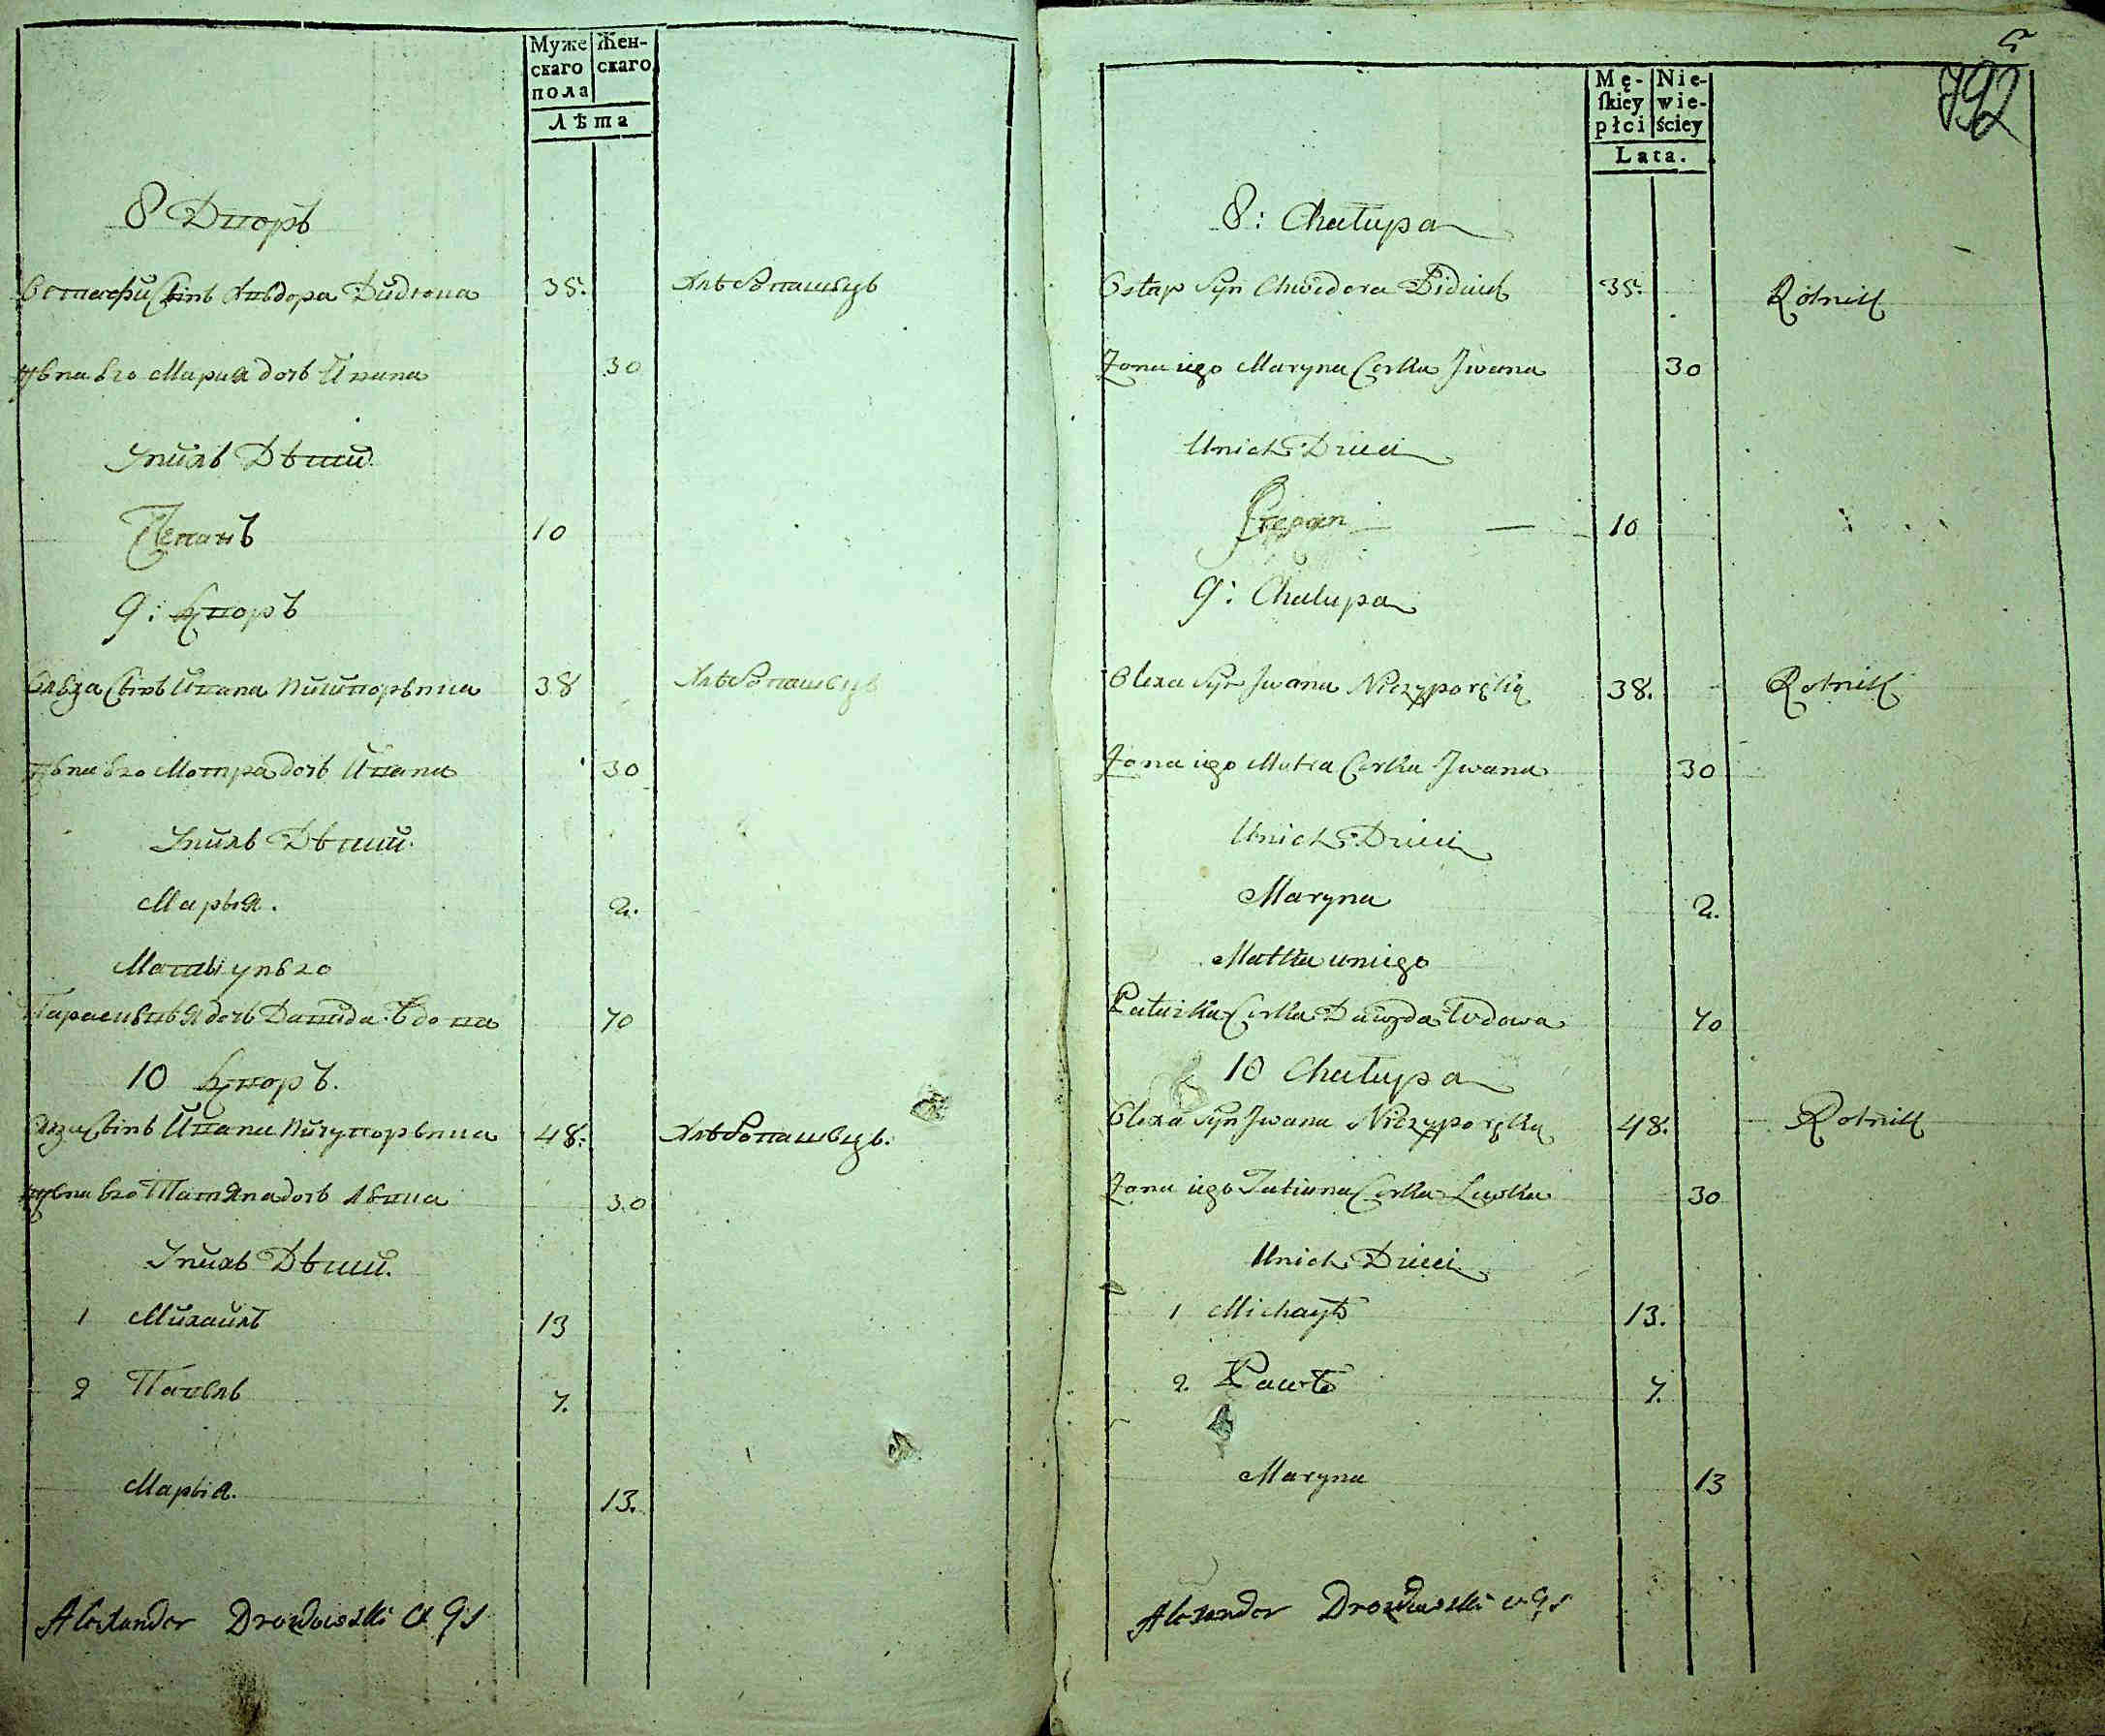 Муже
скаго
пола
Жен-
скаго
лѣта
8 Дворъ
Евстафи Сынъ Хведора Дидюка 35. Хлѣбопашецъ
жена его Мария дочь Ивана 30
У нихъ Дѣти
Степанъ 10
9: Дворъ
Олеза Сынъ Ивана Ничипоренка 38 Хлѣбопашецъ
жена его Мотра дочь Ивана 30
У нихъ Дѣти.
Марья. 2.
Мать у него
дочь Давида Вдова 70
10 Дворъ.
Сынъ Ивана Ничупоренка 48. Хлѣбопашецъ.
жена его Татяна дочь Левка 30
У нихъ Дѣти.
1 Михаилъ 13
2 Павелъ 7.
Марья. 13.
Alexander Drozdowski
5
792
Mę-
skiey
płci
Nie-
wie-
ściey
Lata.
8: Chałupa
Ostap Syn Chwedora Didiuk 35. Rolnik
Żona iego Maryna Corka Jwana 30
U nich Dzieci
Stepan 10
9: Chałupa
Olexa Syn Jwana Niczyporęka 38. Rolnik
Żona iego Motra Corka Jwana 30
U nich Dzieci
Maryna 2.
Matka u niego
Corka Dawyda Wdowa 70
10 Chałupa
Olexa Syn Jwana Niczyporęka 48. Rolnik
Żona iego Tatiana Corka Lewka 30
U nich Dzieci
1 Michayło 13.
2. Pawło 7.
Maryna 13
Alexander Drozdowski